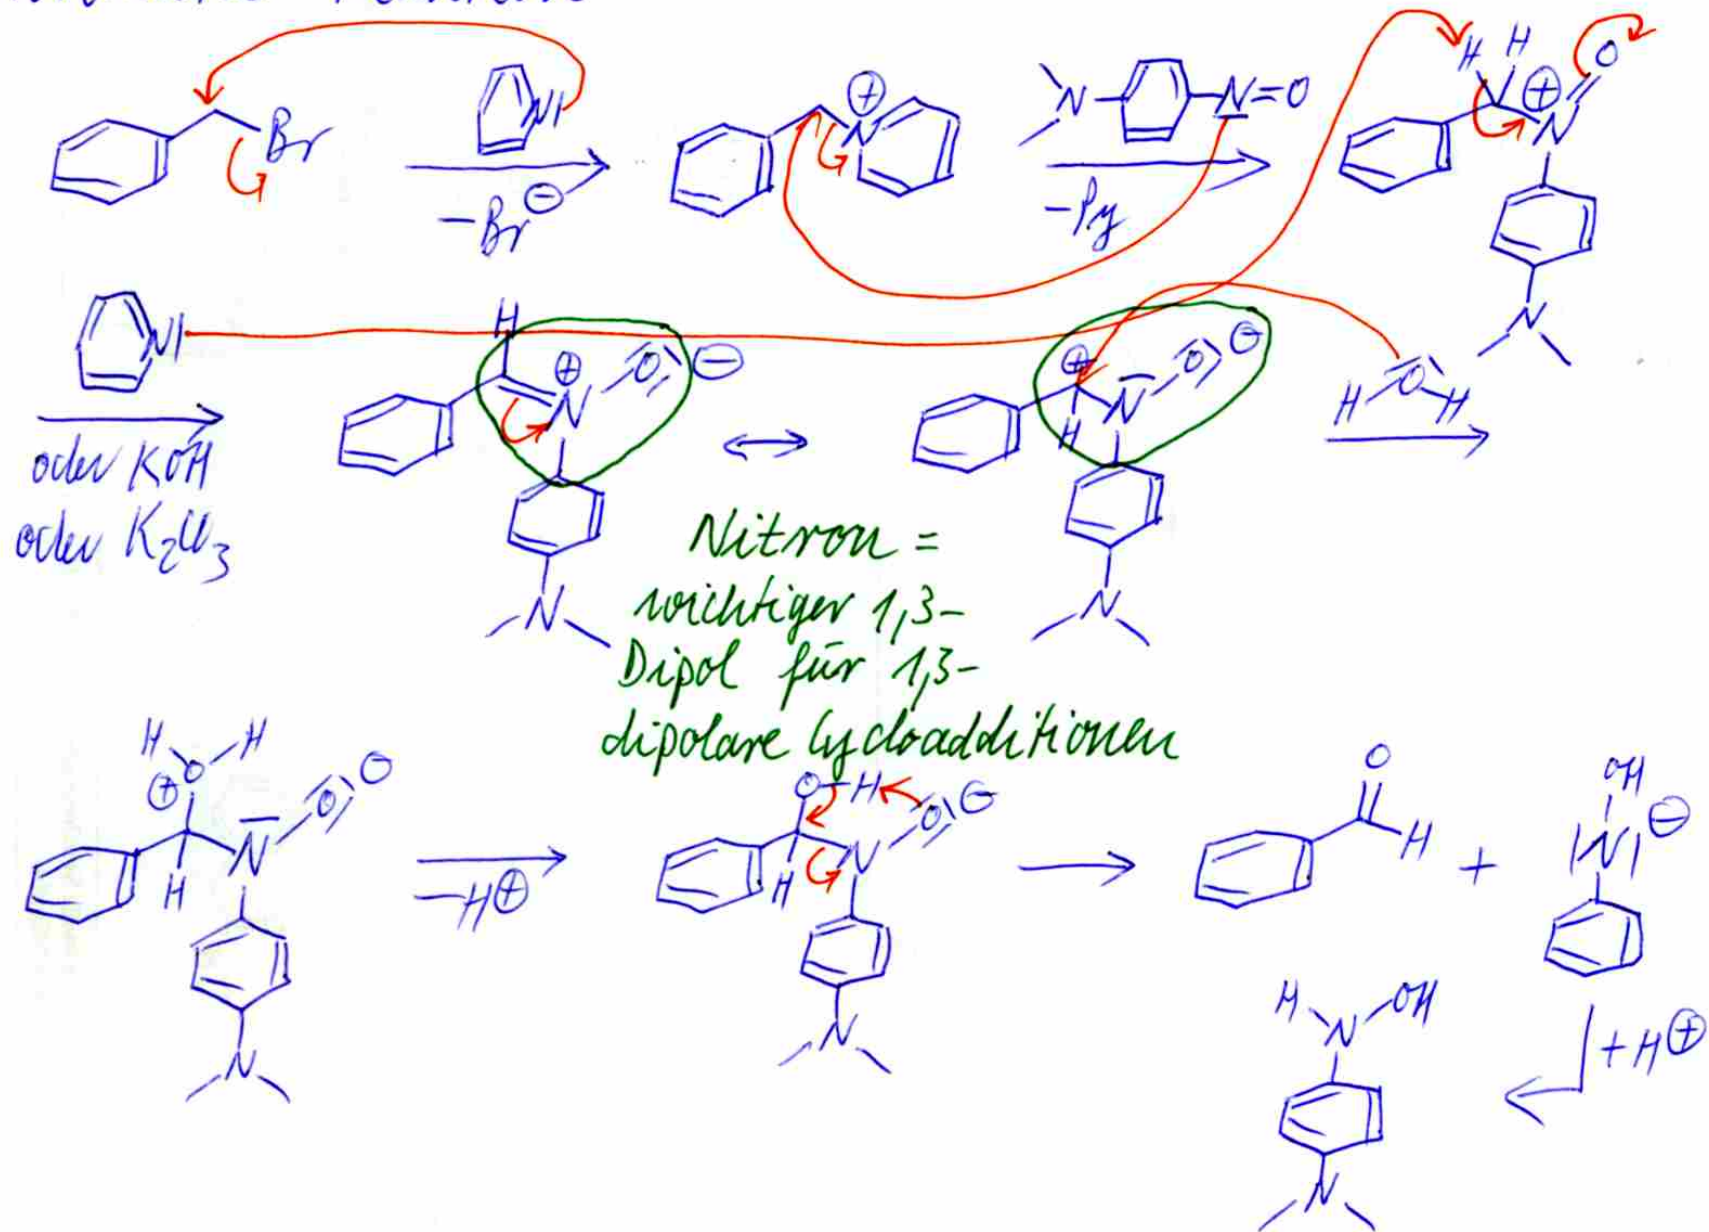 Br
N
−Br⊖
⊕
N
N
N=O
−Py
H H
⊕
O
N
N
N
oder KOH
oder K2CO3
H
⊕
N
O ⊖
N
⊕
H
N
O ⊖
N
H O H
Nitron =
wichtiger 1,3-
Dipol für 1,3-
dipolare Cycloadditionen
H O H
⊕
N
O ⊖
H
N
−H⊕
O−H
O ⊖
N
H
N
O
H
+
OH
N ⊖
+H⊕
H N OH
N